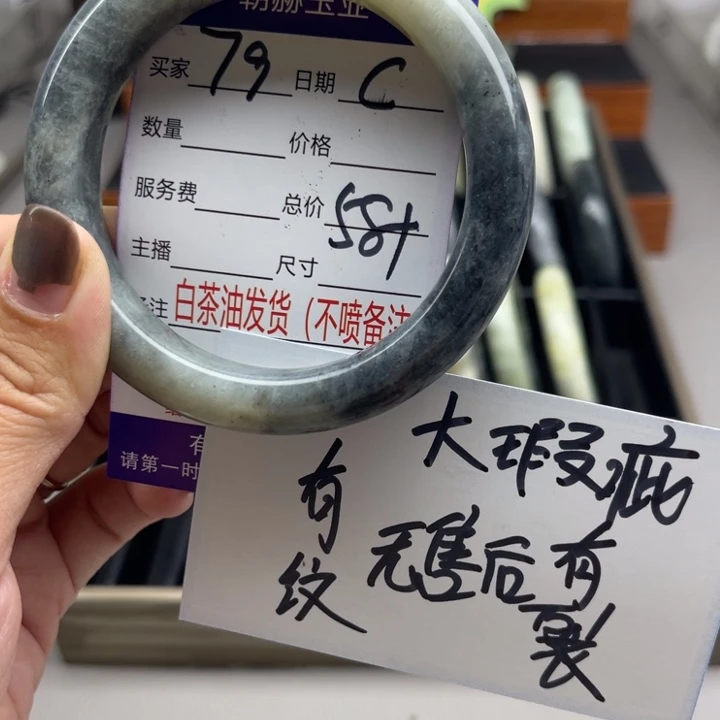 买家 79 日期 C
数量 价格
服务费 总价 58+
主播 尺寸
注 白茶油发货（不喷备注
有
请第一时
大瑕疵
有纹
无售后 有裂